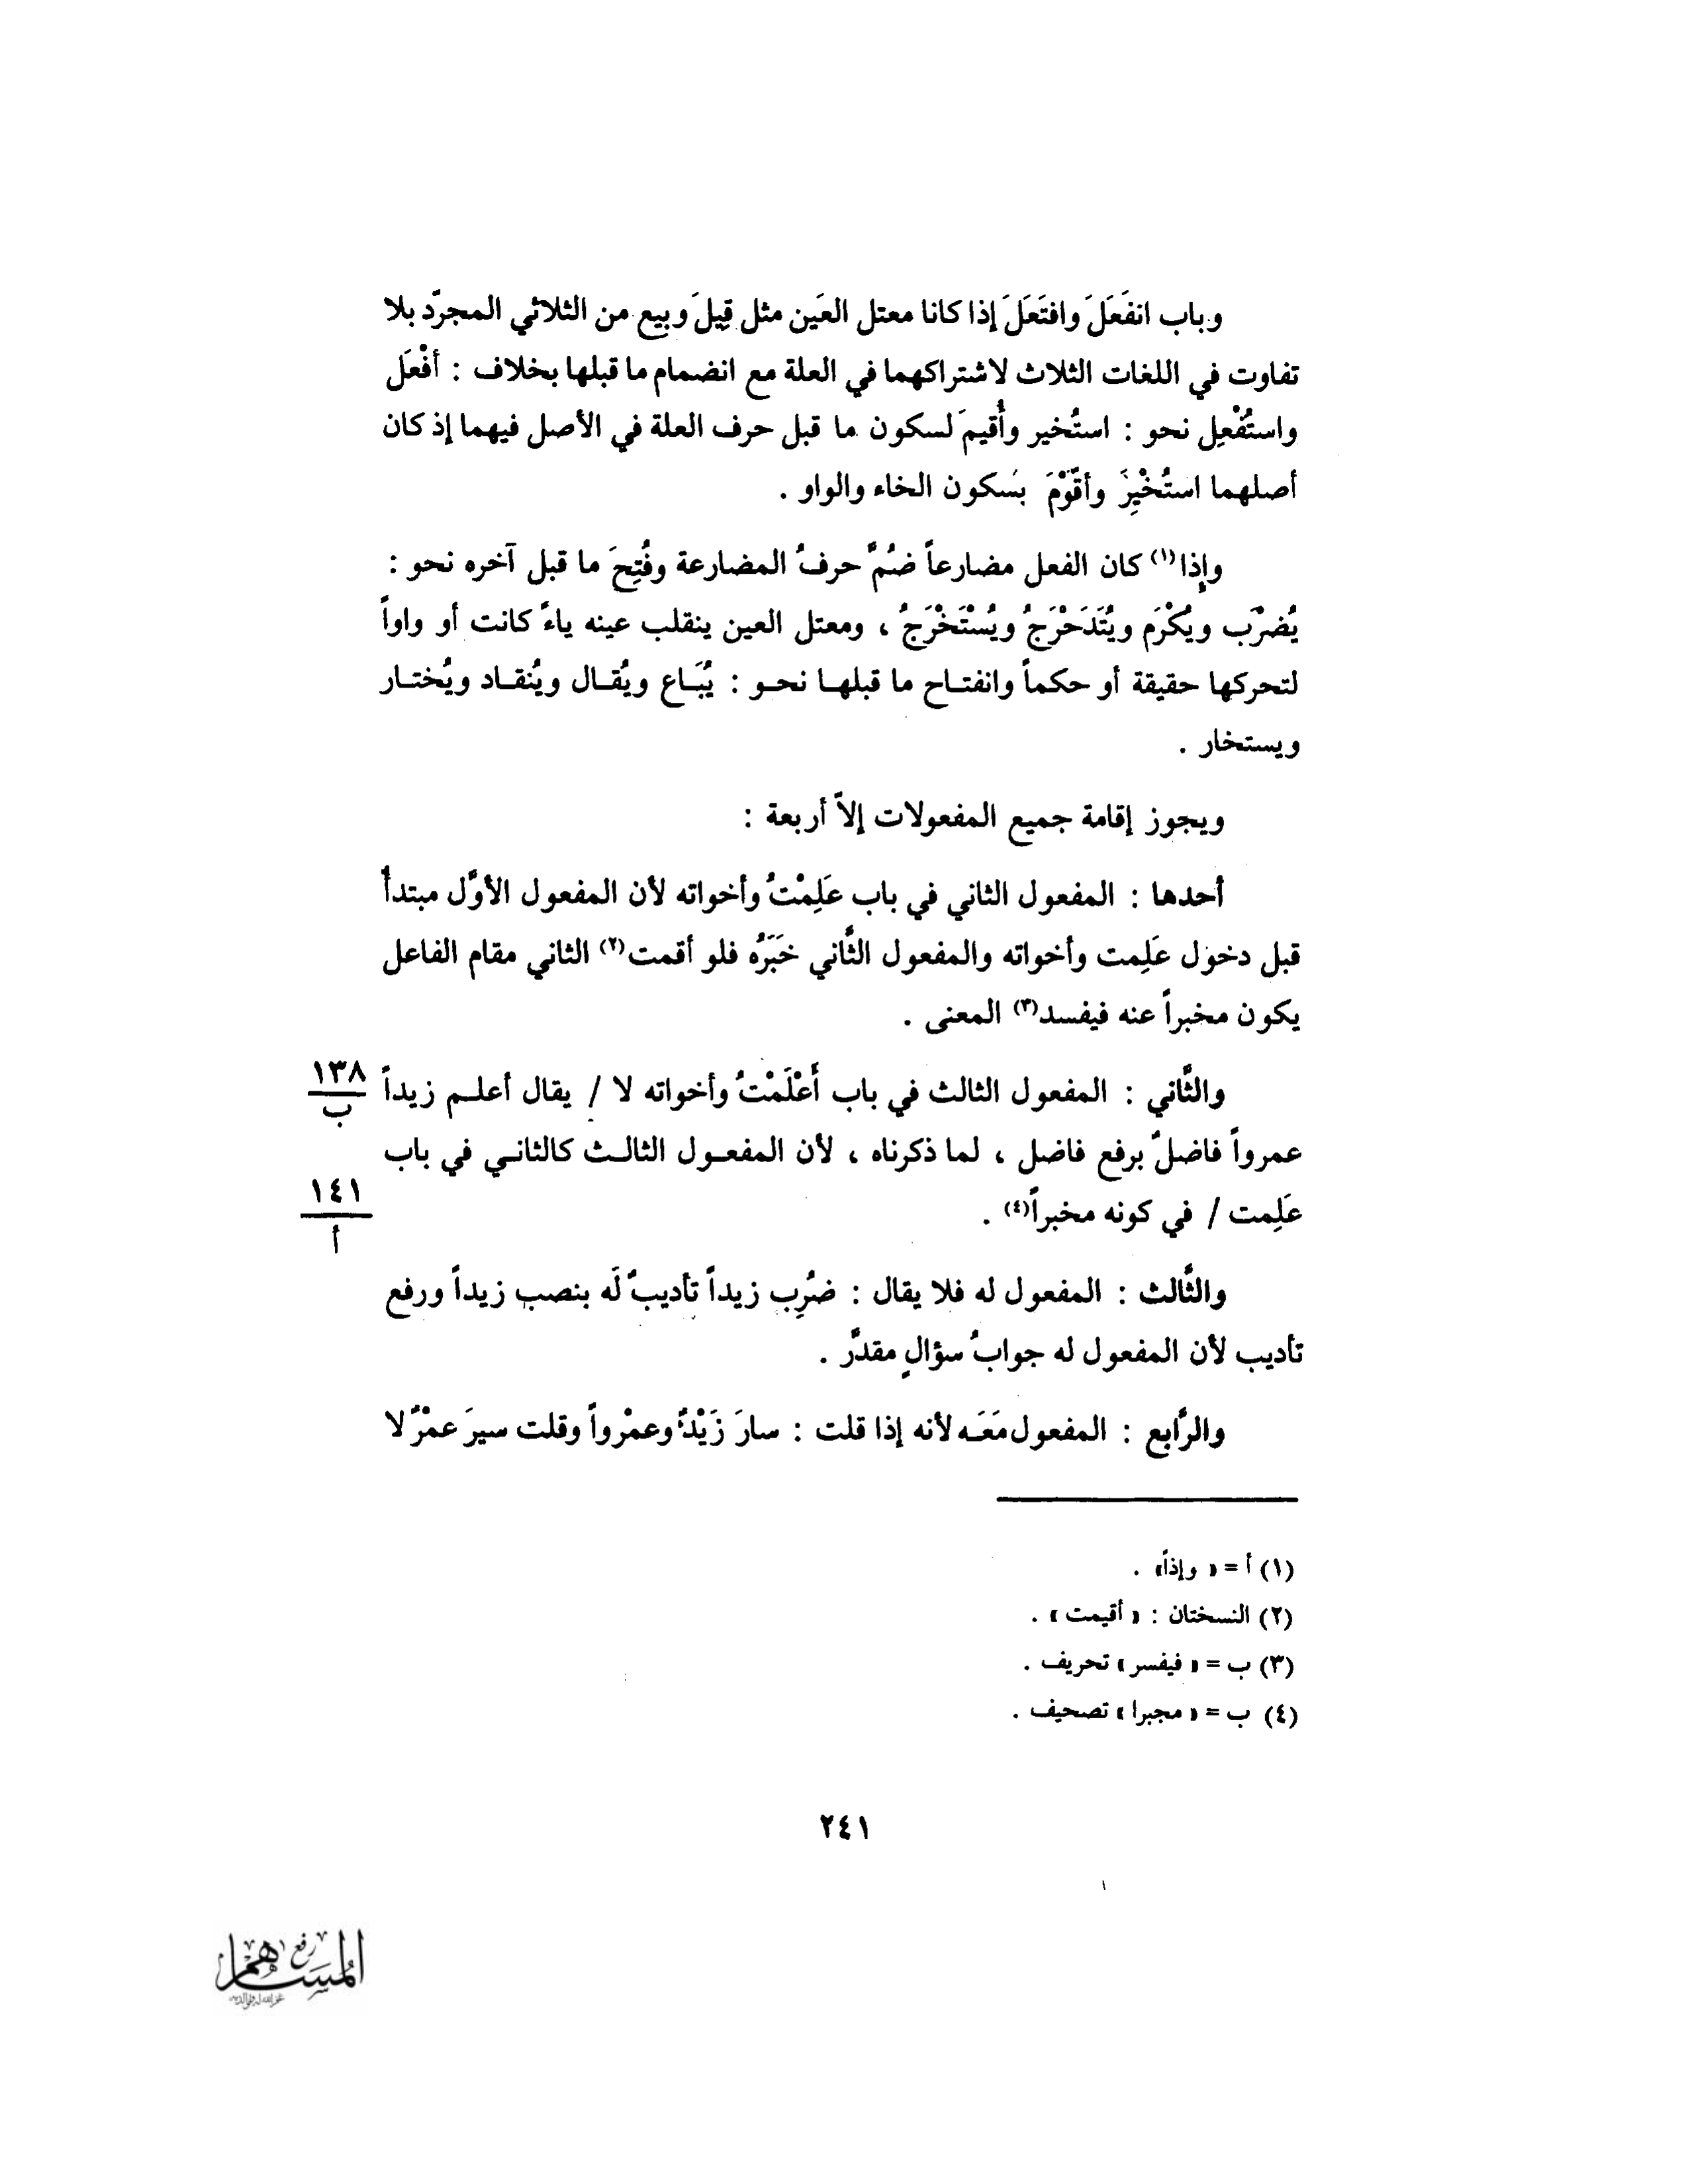 وباب انفَعَلَ وافتَعَلَ إذا كانا معتل العَين مثل قِيلَ وبِيع من الثلاثي المجرّد بلا
تفاوت في اللغات الثلاث لاشتراكهما في العلة مع انضمام ما قبلها بخلاف : أفْعَل
واستُفْعِل نحو : استُخير وأُقيمَ لسكون ما قبل حرف العلة في الأصل فيهما إذ كان
أصلهما استُخْيِرَ وأقْوْمَ بسكون الخاء والواو .
وإذا(١) كان الفعل مضارعاً ضُمَّ حرفُ المضارعة وفُتِحَ ما قبل آخره نحو :
يُضرْب ويُكْرَم ويُتَدَحْرَجُ ويُسْتَخْرَجُ ، ومعتل العين ينقلب عينه ياءً كانت أو واواً
لتحركها حقيقة أو حكماً وانفتاح ما قبلها نحو : يُبَاع ويُقال ويُنقاد ويُختار
ويستخار .
ويجوز إقامة جميع المفعولات إلاّ أربعة :
أحدها : المفعول الثاني في باب عَلِمْتُ وأخواته لأن المفعول الأوَّل مبتدأ
قبل دخول عَلِمت وأخواته والمفعول الثَّاني خَبَرُه فلو أقمت(٢) الثاني مقام الفاعل
يكون مخبراً عنه فيفسد(٣) المعنى .
والثَّاني : المفعول الثالث في باب أَعْلَمْتُ وأخواته لا / يقال أعلم زيداً
١٣٨
ب
عمرواً فاضلٌ برفع فاضل ، لما ذكرناه ، لأن المفعول الثالث كالثاني في باب
عَلِمت / في كونه مخبراً(٤) .
١٤١
أ
والثَّالث : المفعول له فلا يقال : ضُرِب زيداً تأديبٌ لَه بنصب زيداً ورفع
تأديب لأن المفعول له جوابُ سؤالٍ مقدَّر .
والرَّابع : المفعول مَعَه لأنه إذا قلت : سارَ زَيْدٌ وعمْرواً وقلت سيرَ عمْرٌ لا
(١) أ = « وإذاً» .
(٢) النسختان : « أقيمت » .
(٣) ب = « فيفسر » تحريف .
(٤) ب = « مجبرا » تصحيف .
٢٤١
رفع
المساهم
غفر الله له ولوالديه